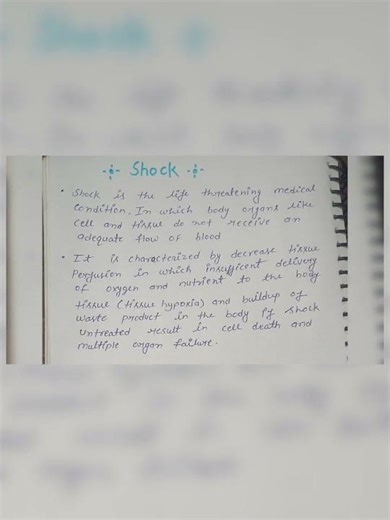 Shock
• Shock is the life threatening medical
condition. In which body organs like
cell and tissue do not receive an
adequate flow of blood
• It is characterized by decrease tissue
Perfusion in which insufficent delivery
of oxygen and nutrient to the body
tissue (tissue hypoxia) and buildup of
waste product in the body if shock
untreated result in cell death and
multiple organ failure.